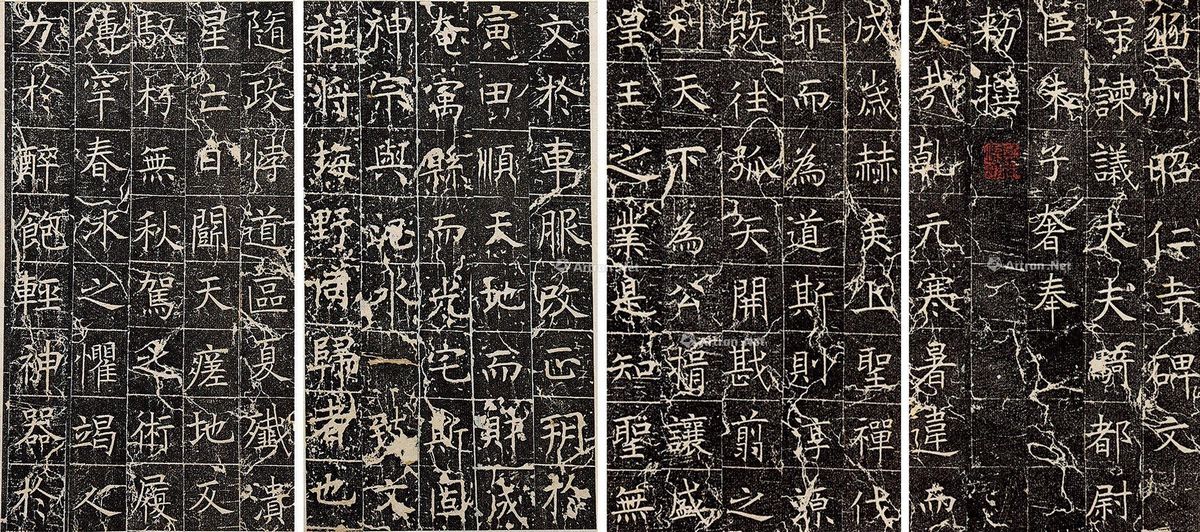 豳州昭仁寺碑文
守諫議大夫騎都尉
臣朱子奢奉
勑撰
大哉乹元寒暑違而
成歲赫矣上聖禪代
乖而為道斯則淳源
既往弧矢開戡翦之
利天下為公揖讓盛
皇王之業是知聖無
文於車服改正朔於
寅田順天地而財成
奄寓縣而光宅斯固
神宗與汜水一致文
祖將梅野同歸者也
隨政悖道區夏殲潰
星亡日鬭天瘥地反
馭朽無秋駕之術履
薄罕春冰之懼竭人
力於醉飽輕神器於
Artron.Net
Artron.Net
Artron.Net